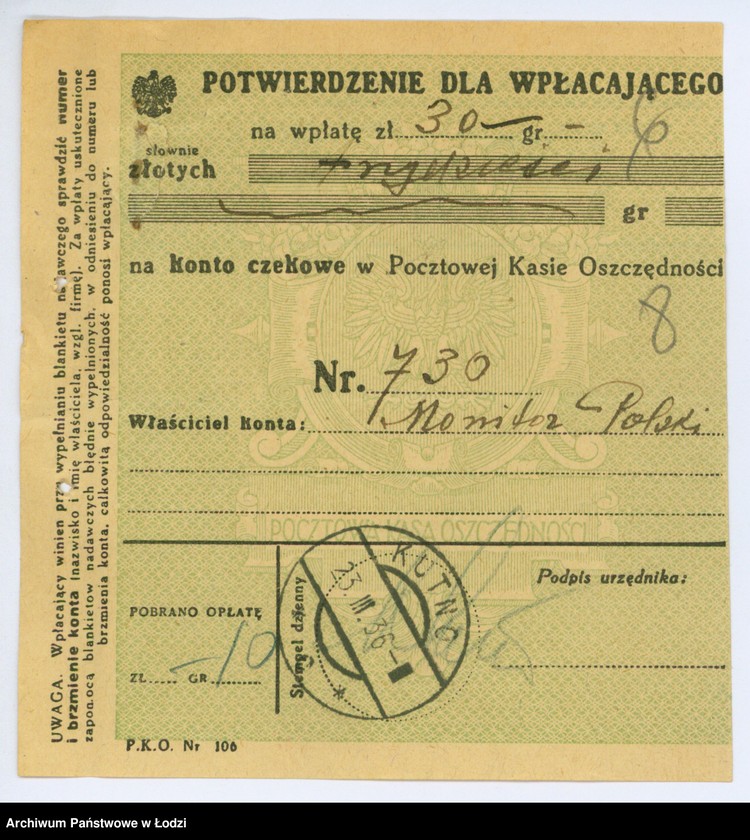 POTWIERDZENIE DLA WPŁACAJĄCEGO
na wpłatę zł 30 gr -
6
słownie
złotych trzydzieści
gr
na konto czekowe w Pocztowej Kasie Oszczędności
8
Nr. 730
Właściciel konta: Monitor Polski
POCZTOWA KASA OSZCZĘDNOŚCI
POBRANO OPŁATĘ
ZŁ..... GR -10
Stempel dzienny
KUTNO
23 III.36-
Podpis urzędnika:
P.K.O. Nr 106
UWAGA. Wpłacający winien przy wypełnianiu blankietu nadawczego sprawdzić numer
i brzmienie konta (nazwisko i imię właściciela, wzgl. firmę). Za wpłaty uskutecznione
zapomocą blankietów nadawczych błędnie wypełnionych, w odniesieniu do numeru lub
brzmienia konta, całkowitą odpowiedzialność ponosi wpłacający.
Archiwum Państwowe w Łodzi